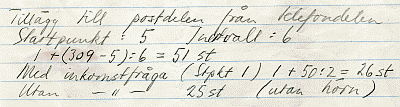 Tillägg till postdelen från telefondelen
Startpunkt: 5 Intervall: 6
1 + (309 - 5):6 = 51 st
Med inkomstfråga (Stpkt 1) 1 + 50:2 = 26 st
Utan -"- 25 st (utan hörn)